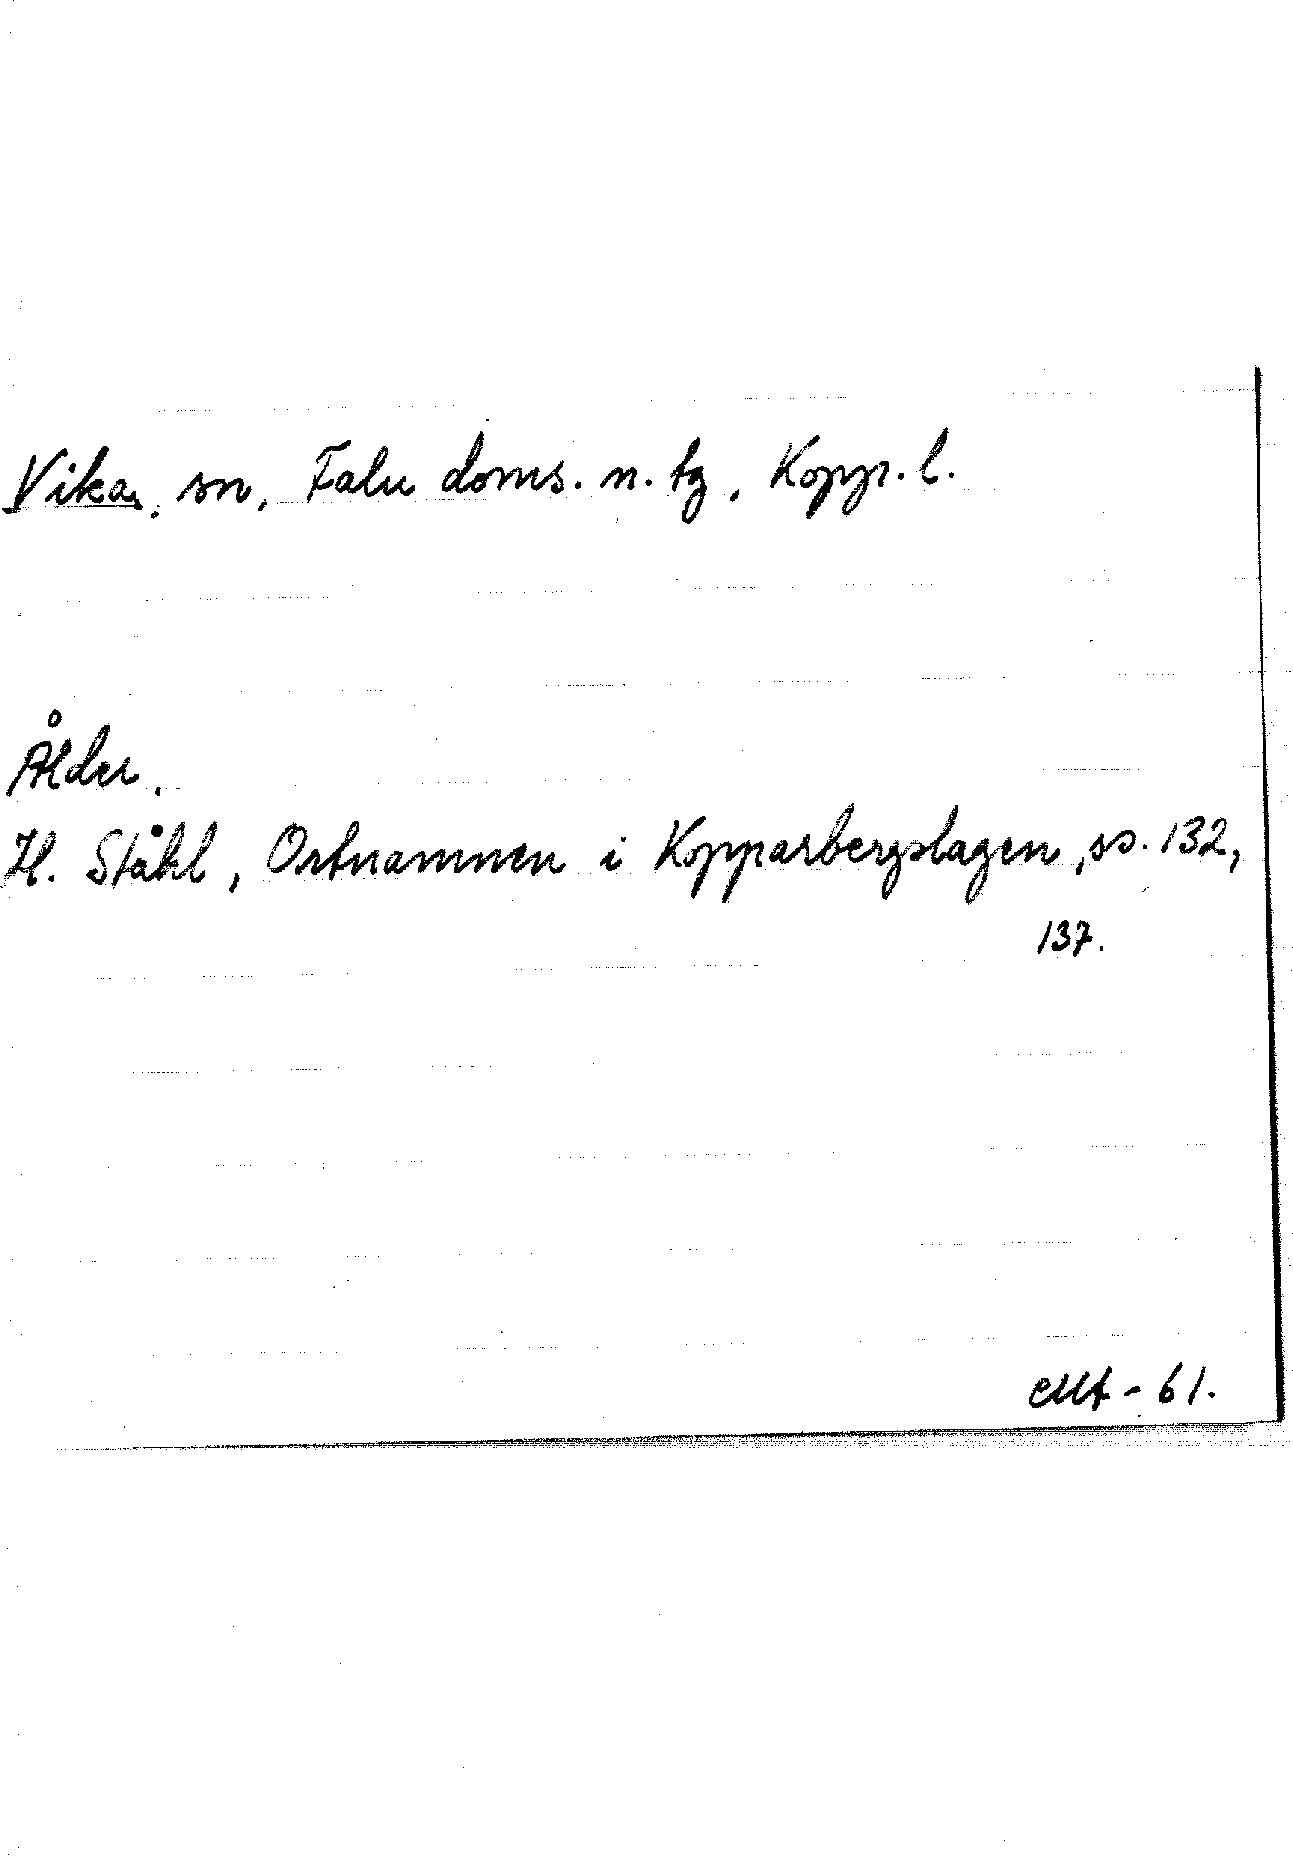 Vika, sn, Falu doms. n. tg, Kopp. l.
Ålder.
H. Ståhl, Ortnamnen i Kopparbergslagen, ss. 132,
137.
- 61.